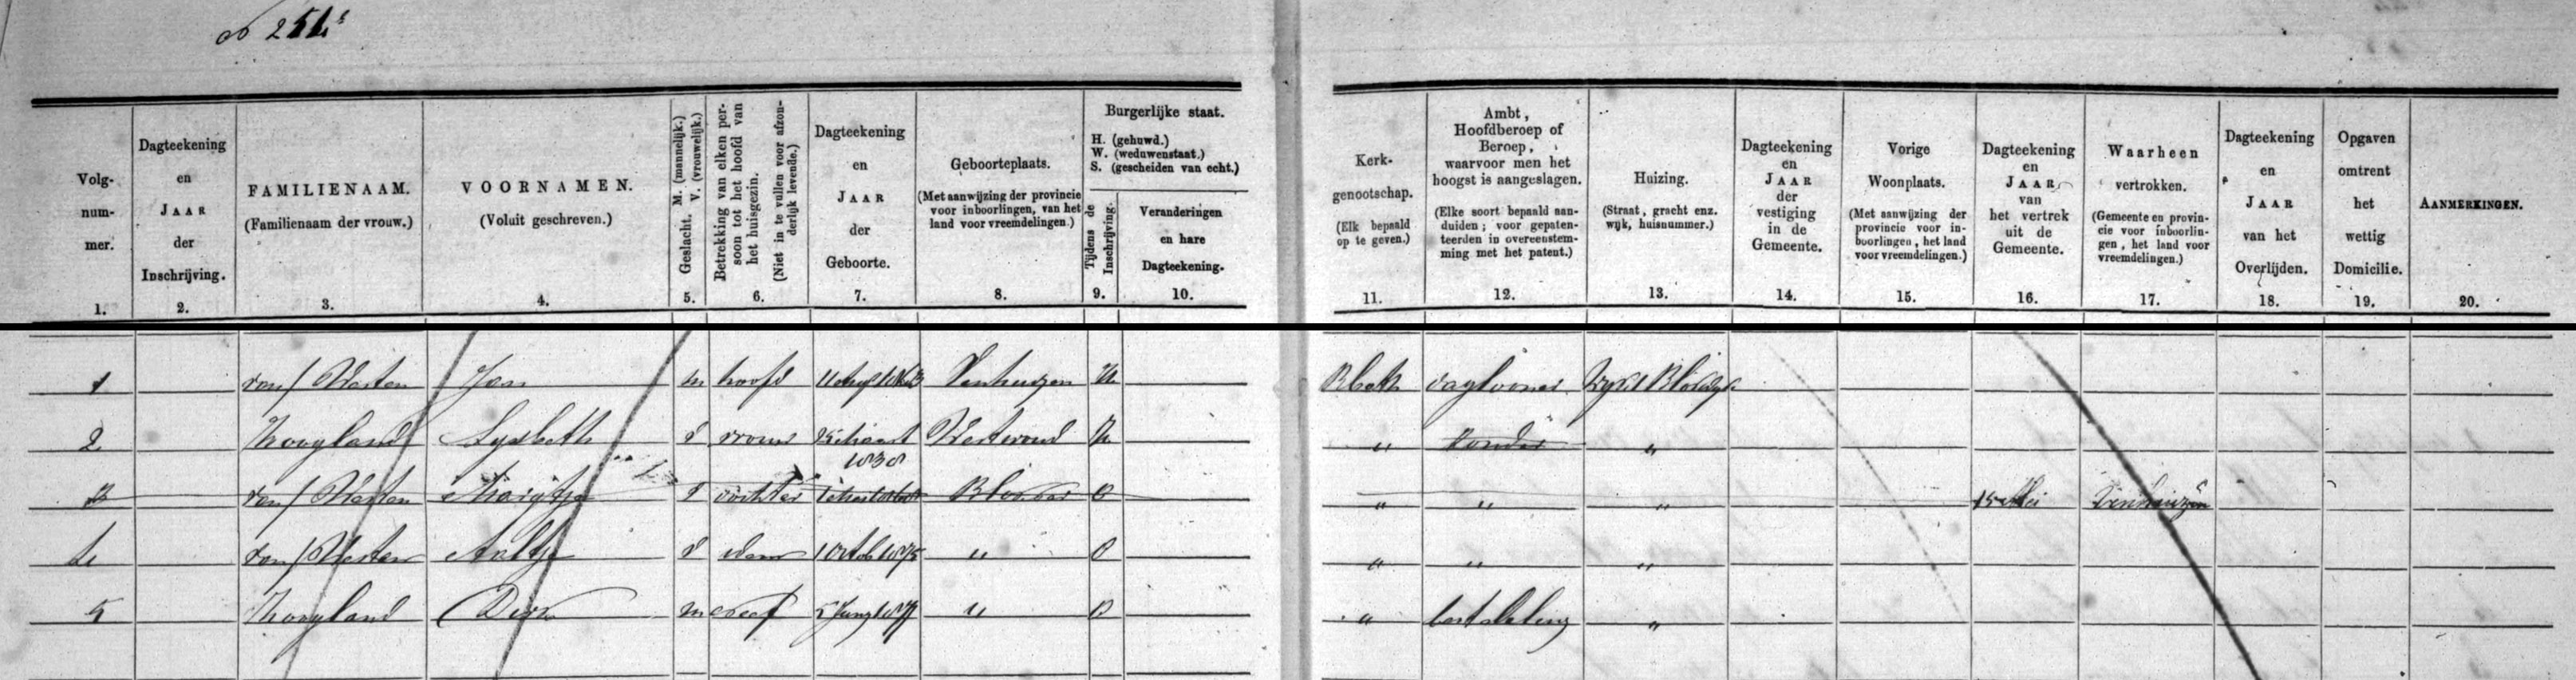 Volg-
num-
mer.
1.
Dagteekening
en
JAAR
der
Inschrijving.
2.
FAMILIENAAM.
(Familienaam der vrouw.)
3.
VOORNAMEN.
(Voluit geschreven.)
4.
Geslacht. M. (mannelijk.)
V. (vrouwelijk.)
5.
Betrekking van elken per-
soon tot het hoofd van
het huisgezin.
(Niet in te vullen voor afzon-
derlijk levende.)
6.
Dagteekening
en
JAAR
der
Geboorte.
7.
Geboorteplaats.
(Met aanwijzing der provincie
voor inboorlingen, van het
land voor vreemdelingen.)
8.
Burgerlijke staat.
H. (gehuwd.)
W. (weduwenstaat.)
S. (gescheiden van echt.)
Tijdens de
Inschrijving.
9.
Veranderingen
en hare
Dagteekening.
10.
Kerk-
genootschap.
(Elk bepaald
op te geven.)
11.
Ambt,
Hoofdberoep of
Beroep,
waarvoor men het
hoogst is aangeslagen.
(Elke soort bepaald aan-
duiden; voor gepaten-
teerden in overeenstem-
ming met het patent.)
12.
Huizing.
(Straat, gracht enz.
wijk, huisnummer.)
13.
Dagteekening
en
JAAR
der
vestiging
in de
Gemeente.
14.
Vorige
Woonplaats.
(Met aanwijzing der
provincie voor in-
boorlingen, het land
voor vreemdelingen.)
15.
Dagteekening
en
JAAR
van
het vertrek
uit de
Gemeente.
16.
Waarheen
vertrokken.
(Gemeente en provin-
cie voor inboorlin-
gen, het land voor
vreemdelingen.)
17.
Dagteekening
en
JAAR
van het
Overlijden.
18.
Opgaven
omtrent
het
wettig
Domicilie.
19.
AANMERKINGEN.
20.
1 van/Westen Jan m hoofd Venhuizen H
2 Hoogland Lysbeth v vrouw 1838 Westwoud H "
3 van/Westen Margtje v dochter O " " " 15 Mei Venhuizen
4 van/Westen Aaltje v idem 1 Octob 1875 " O " " "
5 Hoogland Dirk m neef " O " "